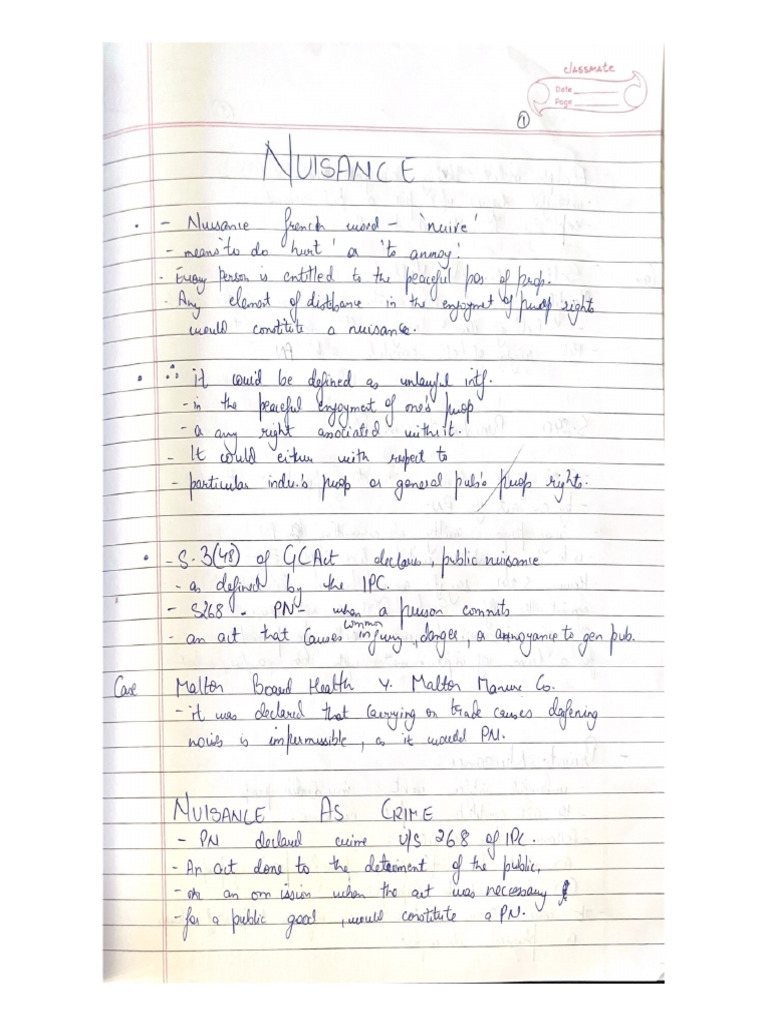 classmate
Date
Page
①
NUISANCE
- Nuisance french word - 'nuire'
- means 'to do hurt' or 'to annoy'.
- Every person is entitled to the peaceful pos of prop.
- Any element of distbance in the enjoymet of prop rights
would constitute a nuisance.
∴ it could be defined as unlawful intf.
- in the peaceful enjoyment of one's prop
- or any right associated with it.
- It could either with respect to
- particular indiv.'s prop or general pub's prop rights.
- S. 3(48) of GC Act declares, public nuisance
- as defined by the IPC.
- S268 - PN - when a person commits
- an act that causes common injury, danger, or annoyance to gen pub.
Case Malton Board Health v. Malton Manure Co.
- it was declared that carrying on trade causes defening
noises is impermissible, as it would PN.
NUISANCE AS CRIME
- PN declared crime u/s 268 of IPC.
- An act done to the deteriment of the public,
- or an omission when the act was necessary
- for a public good, would constitute a PN.